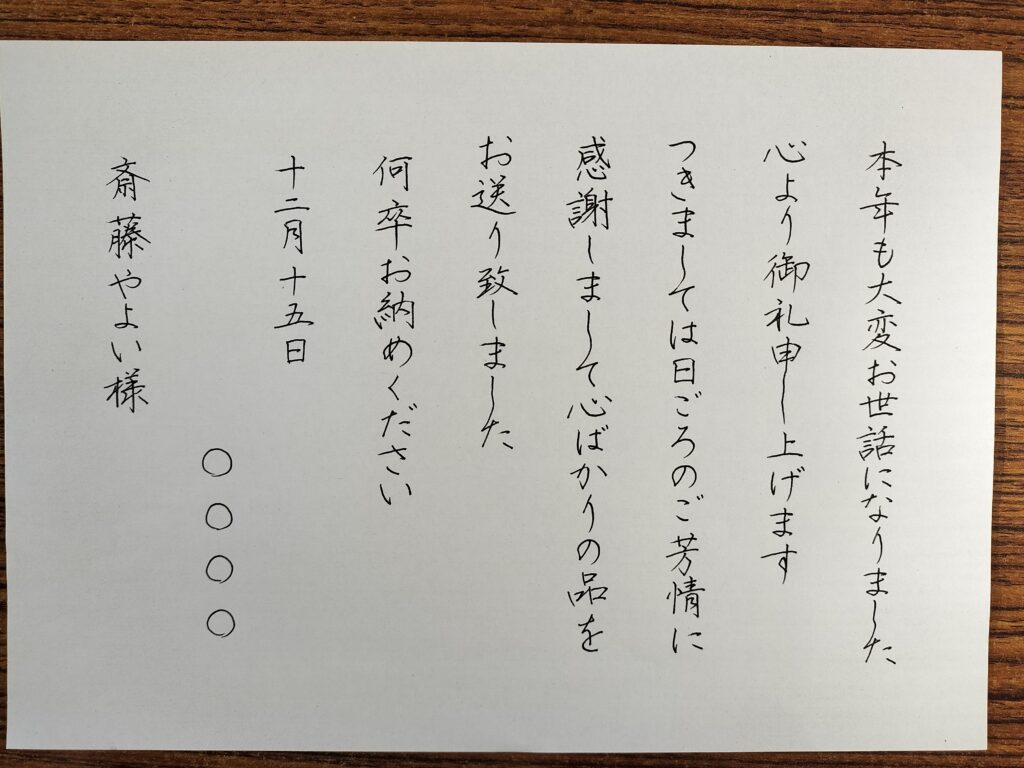 本年も大変お世話になりました
心より御礼申し上げます
つきましては日ごろのご芳情に
感謝しまして心ばかりの品を
お送り致しました
何卒お納めください
十二月十五日
〇〇〇〇
斎藤やよい様